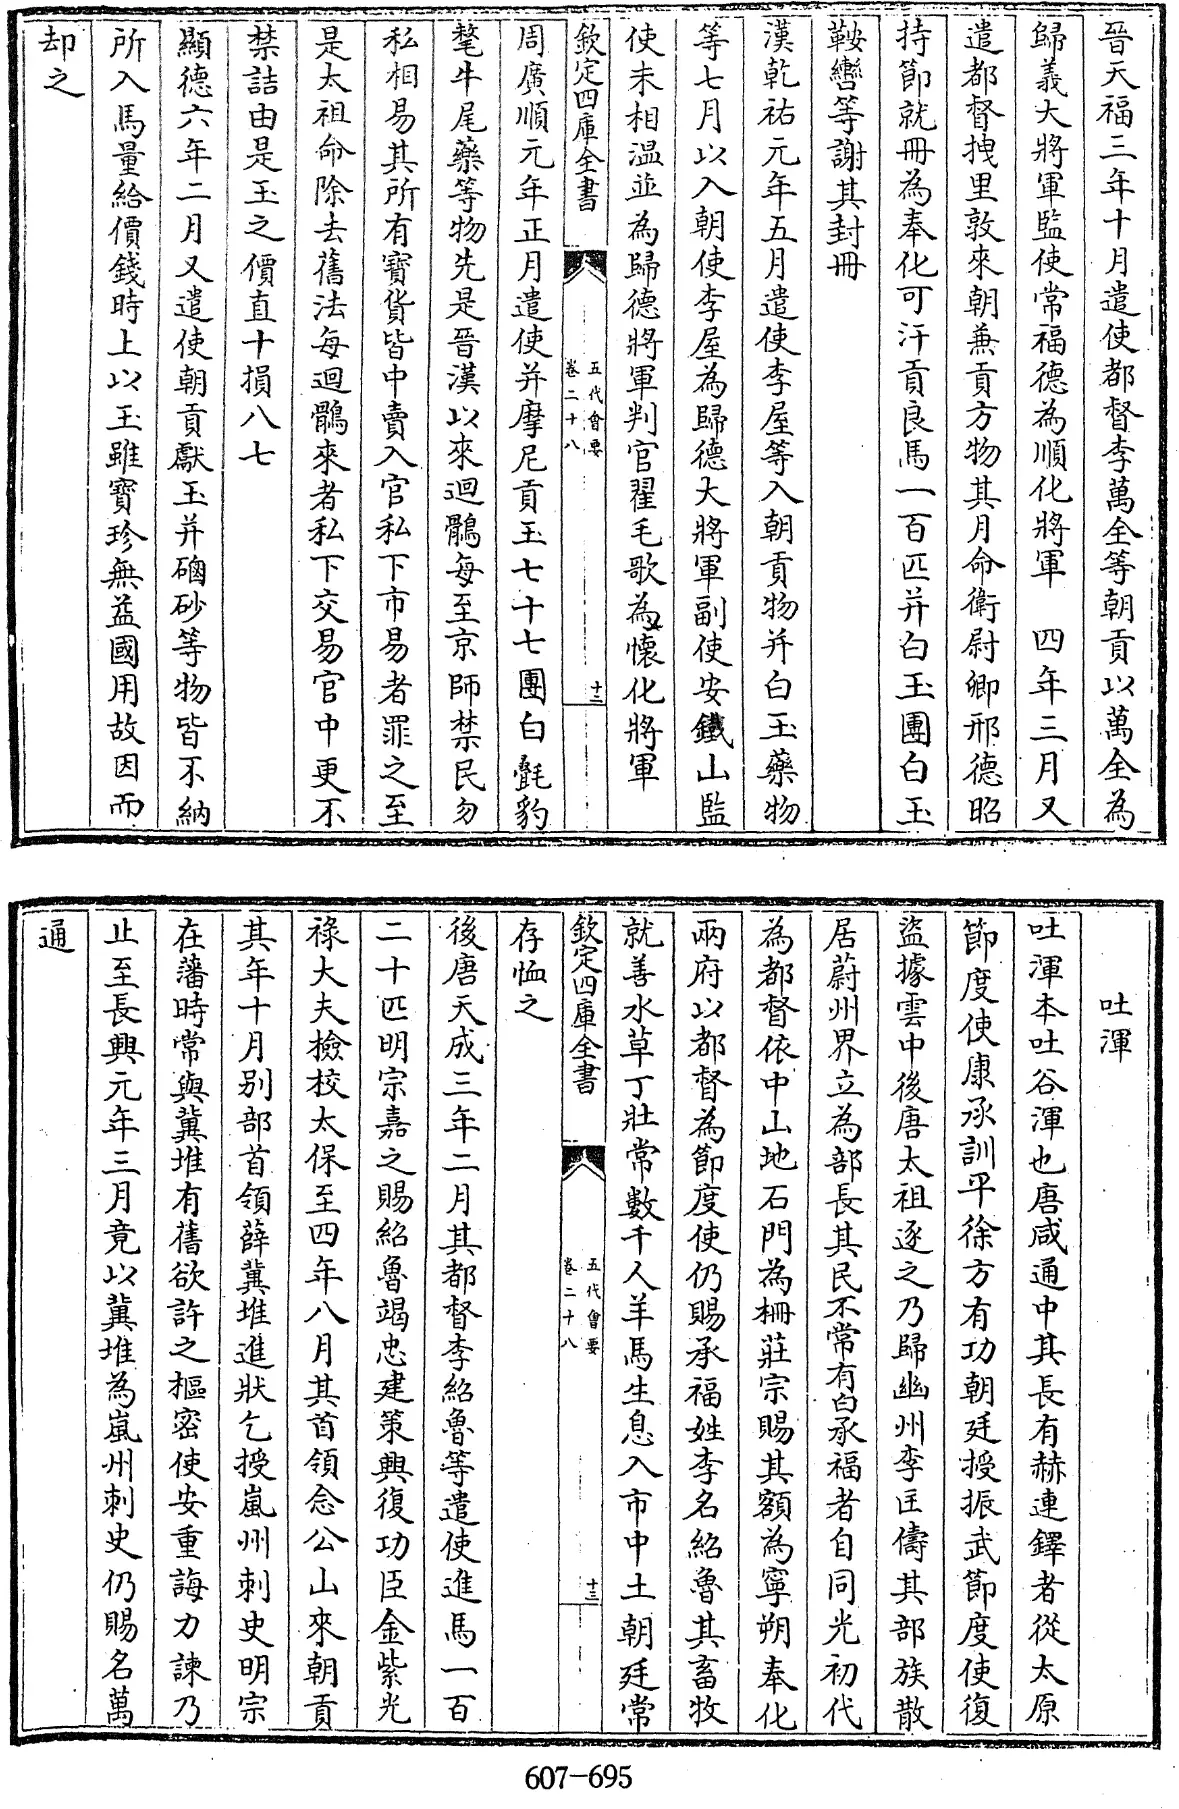 晉天福三年十月遣使都督李萬全等朝貢以萬全為
歸義大將軍監使常福德為順化將軍　四年三月又
遣都督拽里敦來朝兼貢方物其月命衛尉卿邢德昭
持節就冊為奉化可汗貢良馬一百匹并白玉團白玉
鞍轡等謝其封冊
漢乾祐元年五月遣使李屋等入朝貢物并白玉藥物
等七月以入朝使李屋為歸德大將軍副使安鐵山監
使未相溫並為歸德將軍判官翟毛歌為懷化將軍
欽定四庫全書
五代會要
卷二十八
十二
周廣順元年正月遣使并摩尼貢玉七十七團白㲲豹
氂牛尾藥等物先是晉漢以來迴鶻每至京師禁民勿
私相易其所有寶貨皆中賣入官私下市易者罪之至
是太祖命除去舊法每迴鶻來者私下交易官中更不
禁詰由是玉之價直十損八七
顯德六年二月又遣使朝貢獻玉并硇砂等物皆不納
所入馬量給價錢時上以玉雖寶珍無益國用故因而
却之
吐渾
吐渾本吐谷渾也唐咸通中其長有赫連鐸者從太原
節度使康承訓平徐方有功朝廷授振武節度使復
盜據雲中後唐太祖逐之乃歸幽州李匡儔其部族散
居蔚州界立為部長其民不常有白承福者自同光初代
為都督依中山地石門為柵莊宗賜其額為寧朔奉化
兩府以都督為節度使仍賜承福姓李名紹魯其畜牧
就善水草丁壯常數千人羊馬生息入市中土朝廷常
欽定四庫全書
五代會要
卷二十八
十三
存恤之
後唐天成三年二月其都督李紹魯等遣使進馬一百
二十匹明宗嘉之賜紹魯竭忠建策興復功臣金紫光
祿大夫檢校太保至四年八月其首領念公山來朝貢
其年十月别部首領薛冀堆進狀乞授嵐州刺史明宗
在藩時常與冀堆有舊欲許之樞密使安重誨力諫乃
止至長興元年三月竟以冀堆為嵐州刺史仍賜名萬
通
607-695